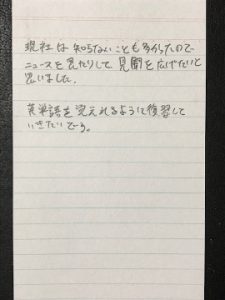 現社は知らないことも多かったので
ニュースを見たりして見聞を広げたいと
思いました。
英単語を覚えれるように復習して
いきたいです。